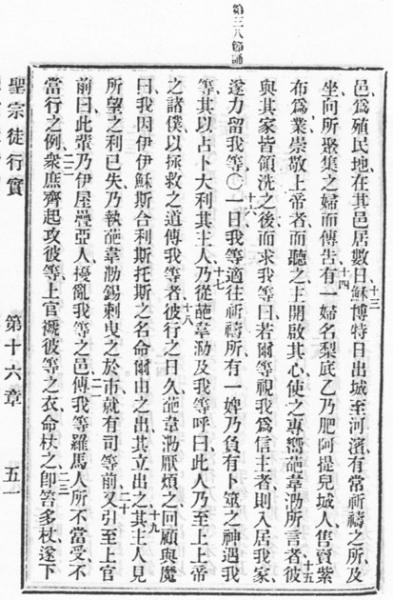 第三八節誦
邑爲殖民地、在其邑居數日、十三穌博特日出城至河濱、有常祈禱之所、及
坐向所聚集之婦而傳吿、十四有一婦名梨底乙、乃肥阿提兒城人、售賣紫
布爲業、崇敬上帝者、而聽之、主開啟其心、使之專嚮葩韋泐所言者、十五彼
與其家皆領洗之後而求我等曰、若爾等視我爲信主者、則入居我家、
遂力留我等、〇十六一日我等適往祈禱所、有一婢乃負有卜筮之神、遇我
等、其以占卜大利其主人、十七乃從葩韋泐及我等呼曰、此人乃至上上帝
之諸僕以拯救之道傳我等者、十八彼行之日久、葩韋泐厭煩之、回顧與魔
曰、我因伊伊穌斯合利斯托斯之名命爾由之出、其立出之、十九其主人見
所望之利已失、乃執葩韋泐錫剌曳之於市、就有司等前、二十又引至上官
前曰、此輩乃伊屋疊亞人、擾亂我等之邑、二一傳我等羅馬人所不當受、不
當行之例、二二衆庶齊起攻彼等、上官褫彼等之衣、命杖之、二三卽笞多杖、遂下
聖宗徒行實 第十六章 五一